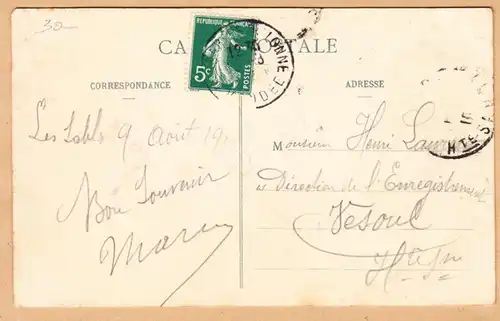 30-
CA TALE
RÉPUBLIQUE FRANÇAISE
5c
POSTES
LONNE
VENDÉE
CORRESPONDANCE
ADRESSE
Les Sables 9 Août 19
Bon Souvenir
Monsieur Henri
Direction de l'Enregistrement
Vesoul
Hte Sne
HTE-SA